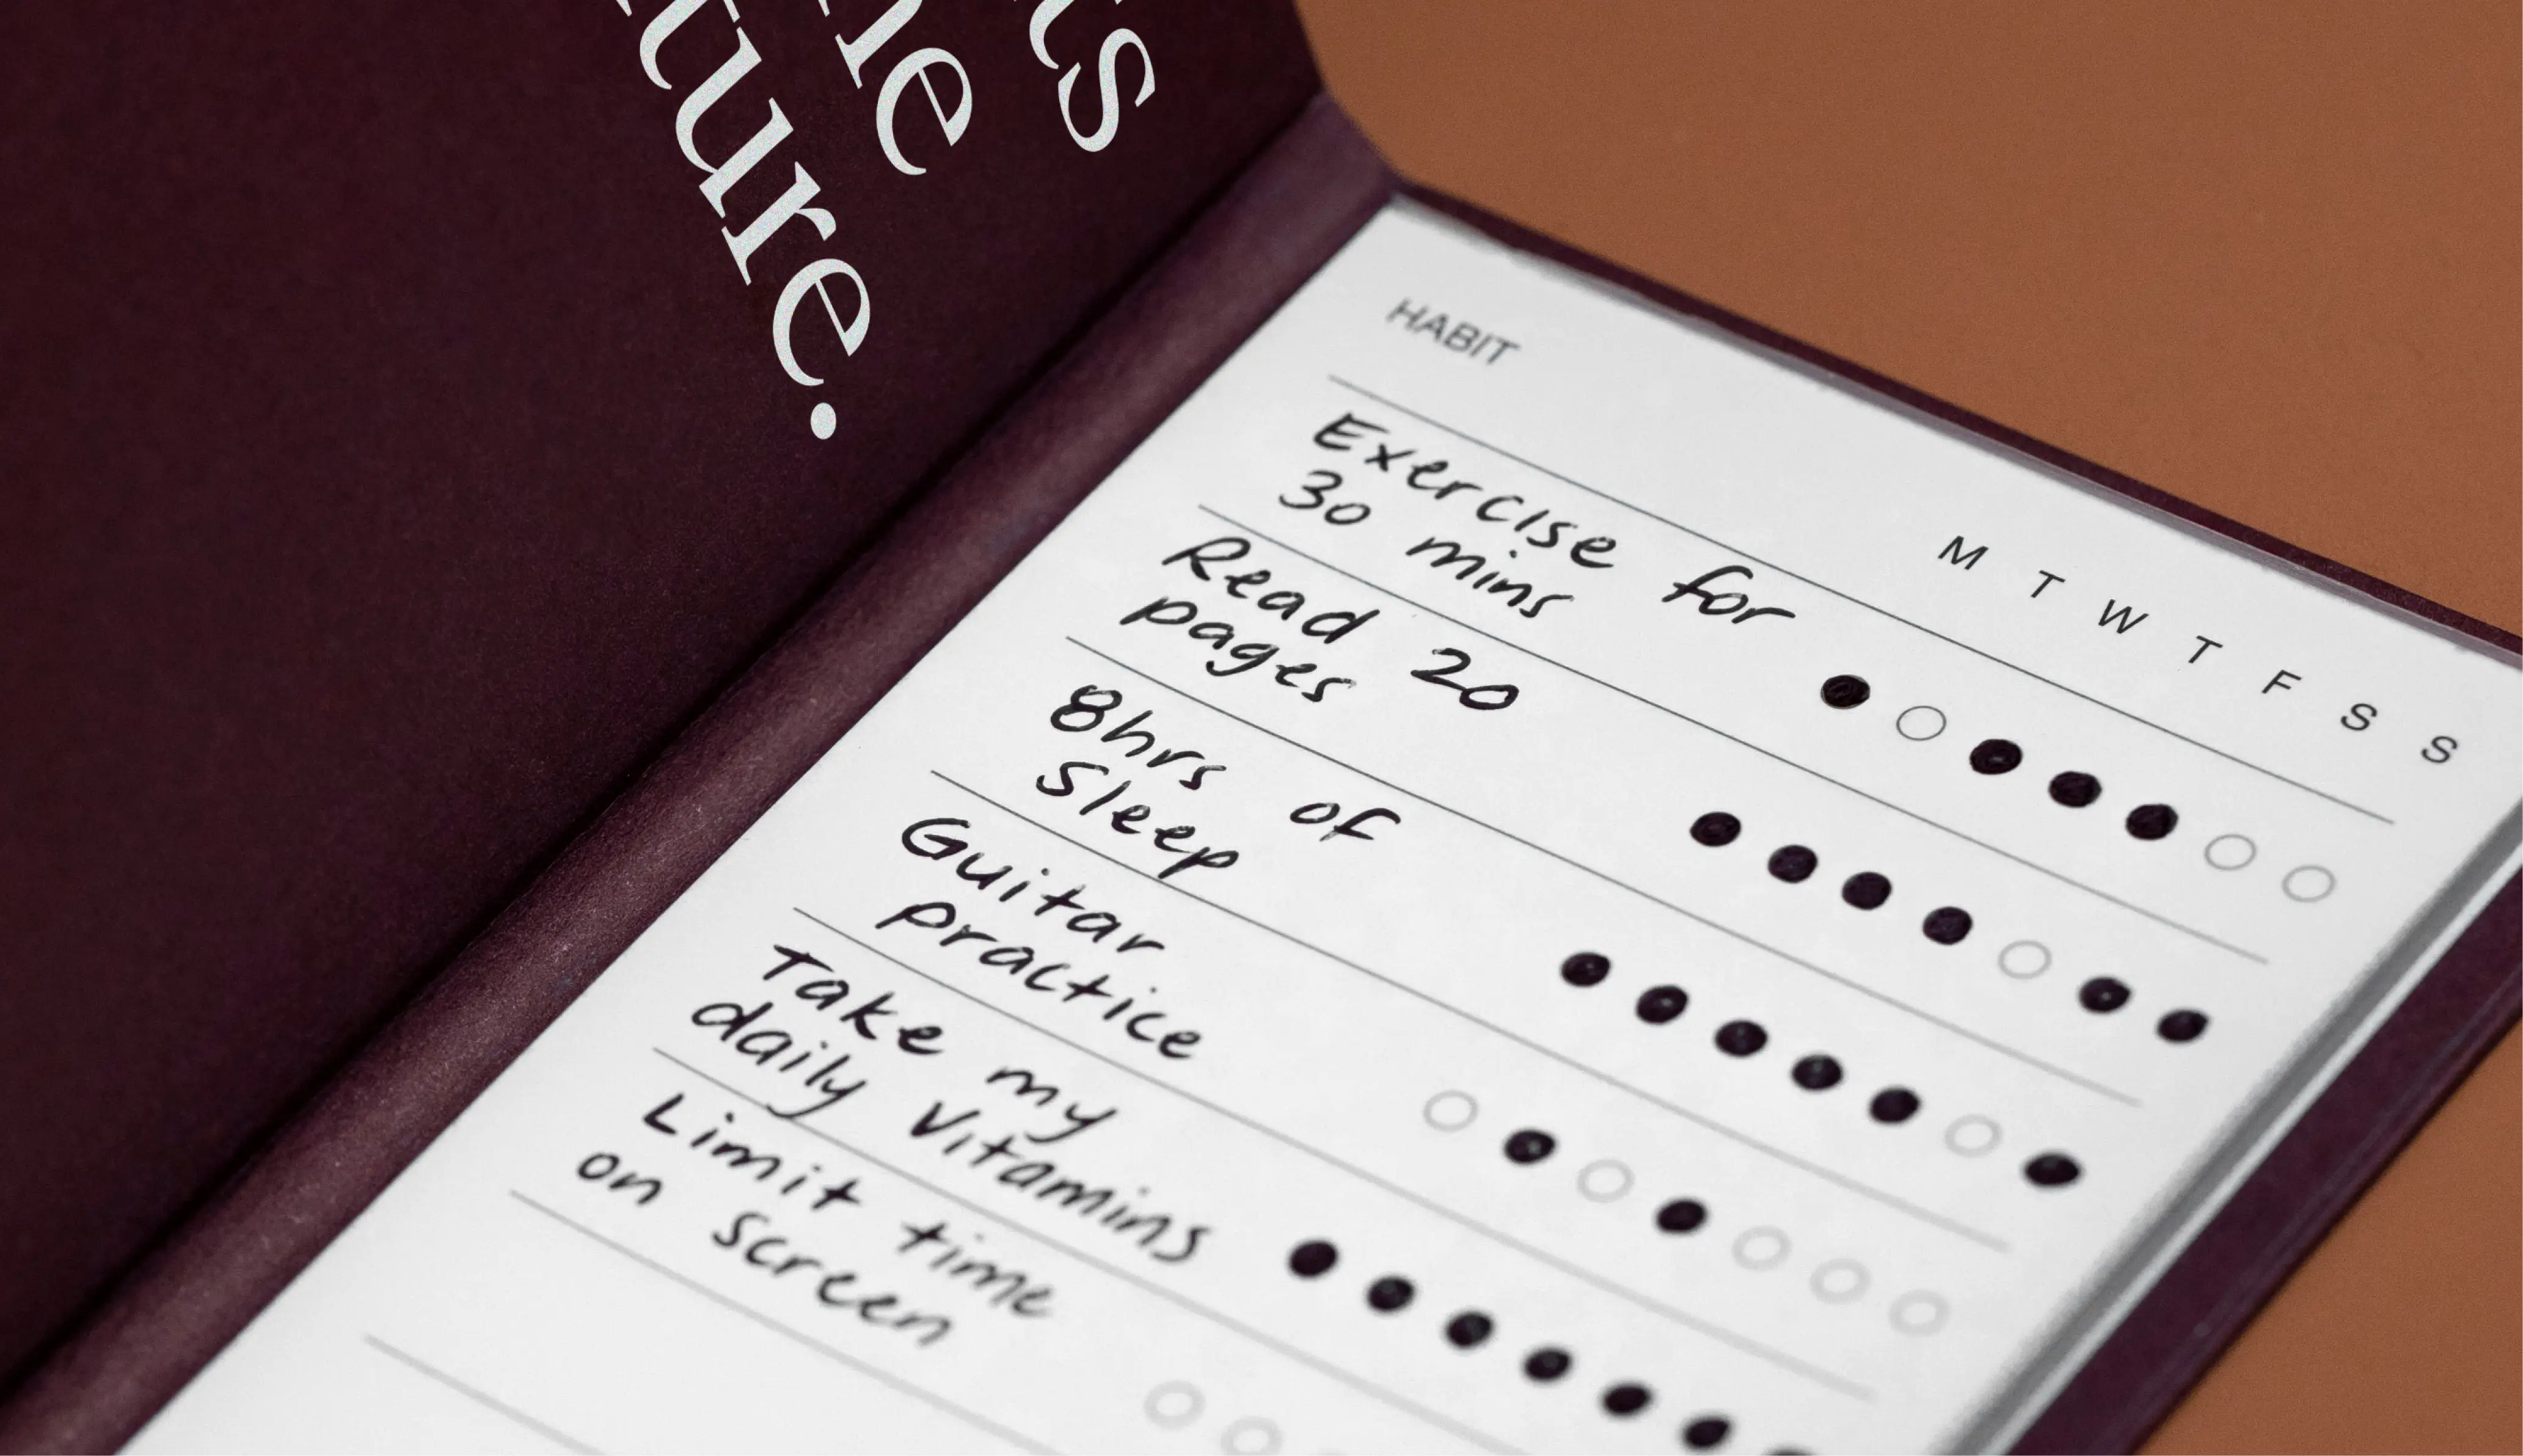 ts
he
ture.
HABIT
M T W T F S S
Exercise for
30 mins
Read 20
pages
8hrs of
Sleep
Guitar
practice
Take my
daily Vitamins
Limit time
on screen